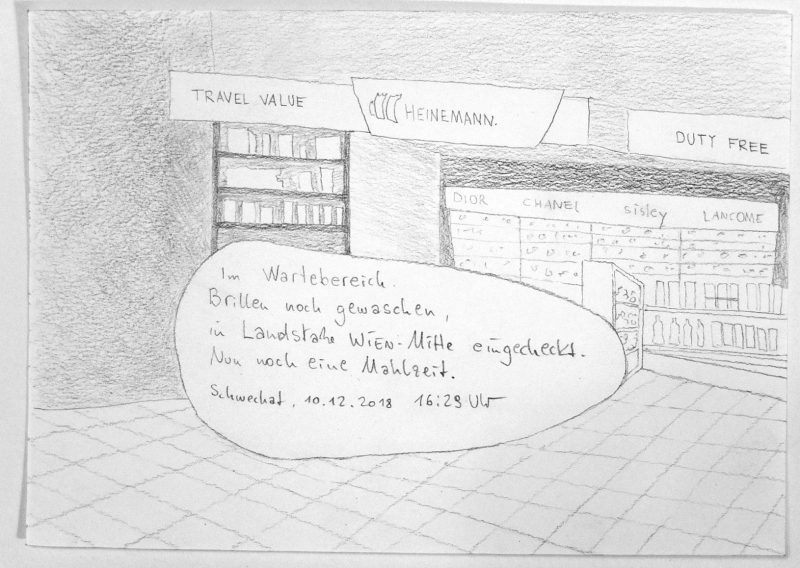 TRAVEL VALUE
HEINEMANN.
DUTY FREE
DIOR CHANEL sisley LANCOME
Im Wartebereich.
Brillen noch gewaschen,
in Landstraße WIEN-Mitte eingecheckt.
Nun noch eine Mahlzeit.
Schwechat, 10.12.2018 16:29 Uhr